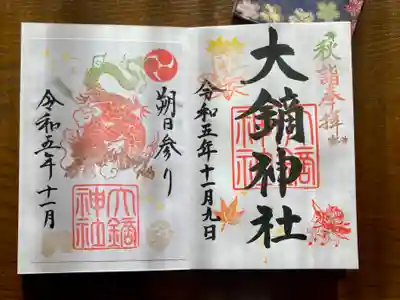 秋詣奉拝
大鏑神社
令和五年十一月九日
大鏑
神社
朔日参り
令和五年十一月
大鏑
神社